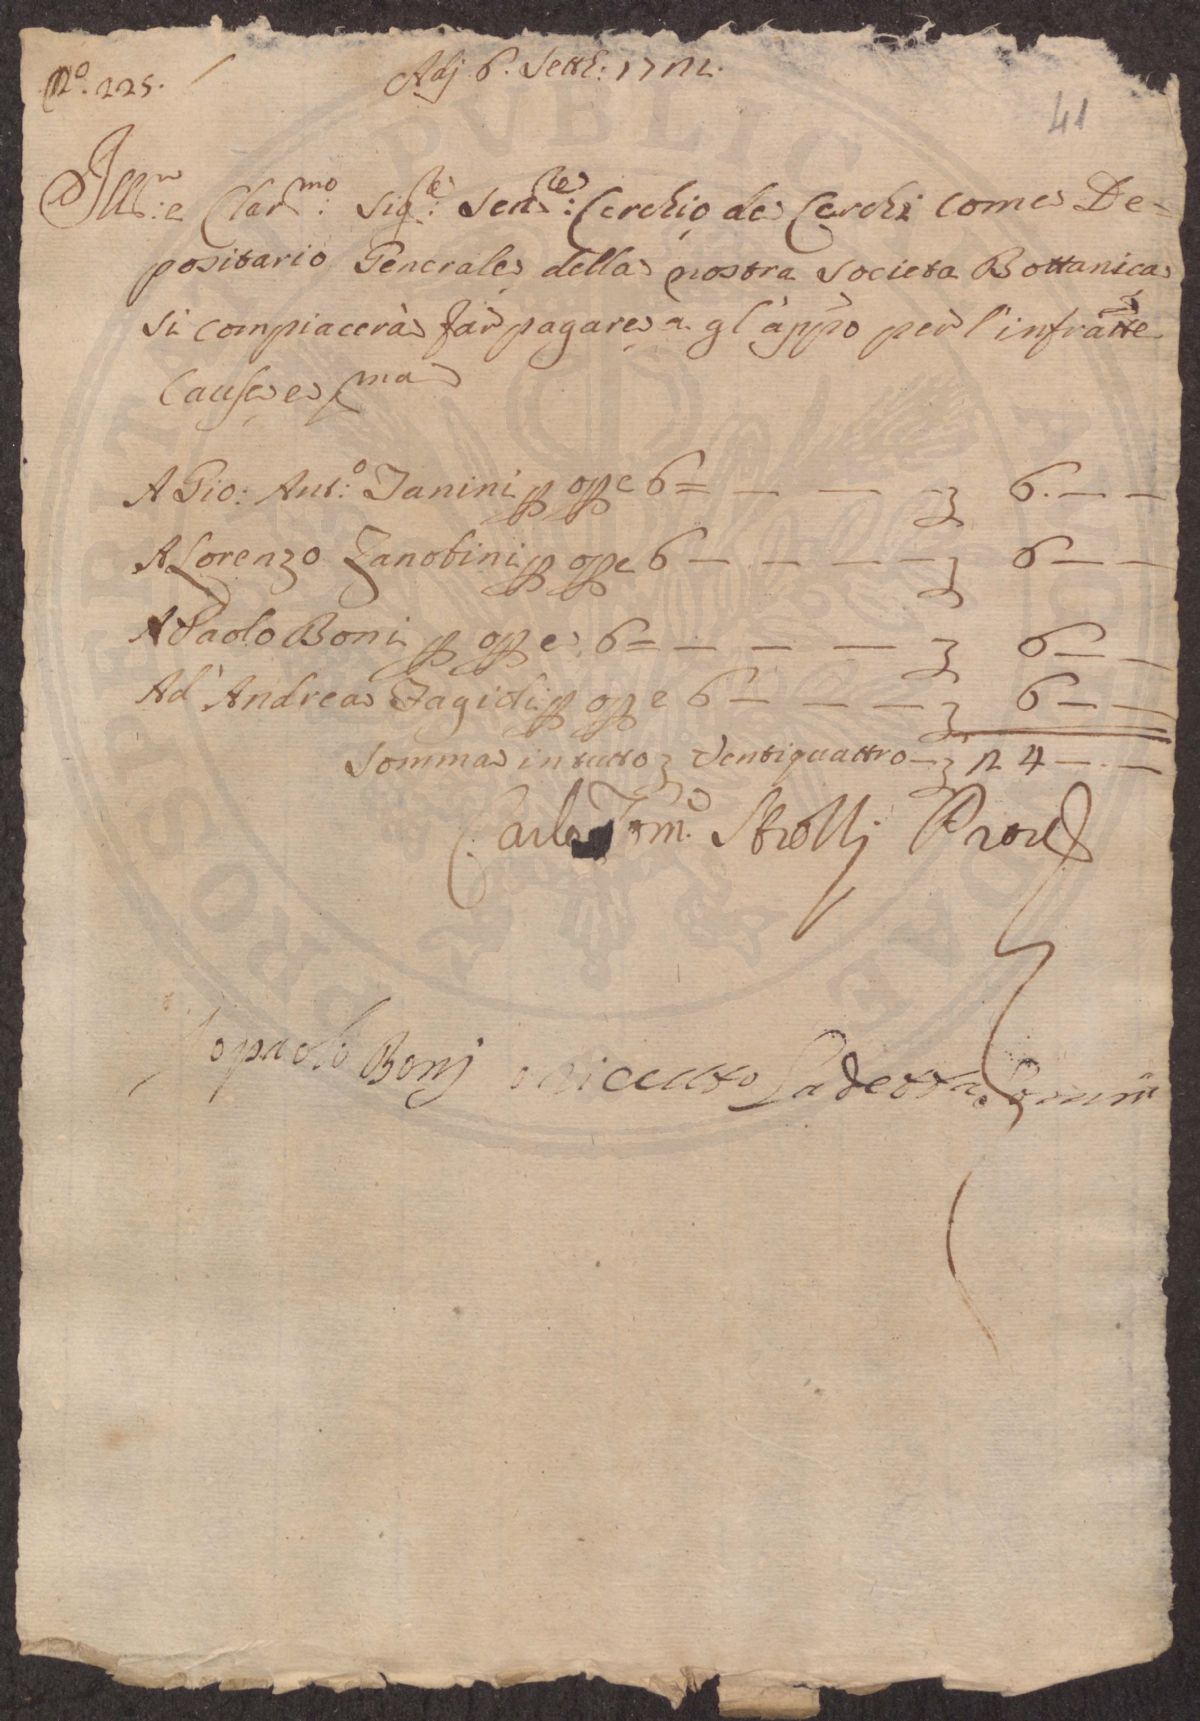 N.º 225.
Adj 6. Sett.e: 1742.
41
Ill.m e Clar.mo: Sig.re: Sen.re: Cerchio de Cerchi come De=
positario Generale della nostra Societa Bottanica
si compiacerà far pagare a gl'app.o per l'infra.tte
Cause e s.ma
A Gio: Ant.o: Janini p opp e 6= — — — 6. — —
A Lorenzo Zanobini p opp e 6 — — — — 6 — —
A Paolo Boni p opp e 6= — — — 6 — —
Ad Andrea Fagioli p opp e 6 — — — 6 — —
Somma in tutto Ventiquattro — 24 — —
Carlo Tom.o Strozzj Prov.
Io paolo Bonj o ricuto La detta Somma